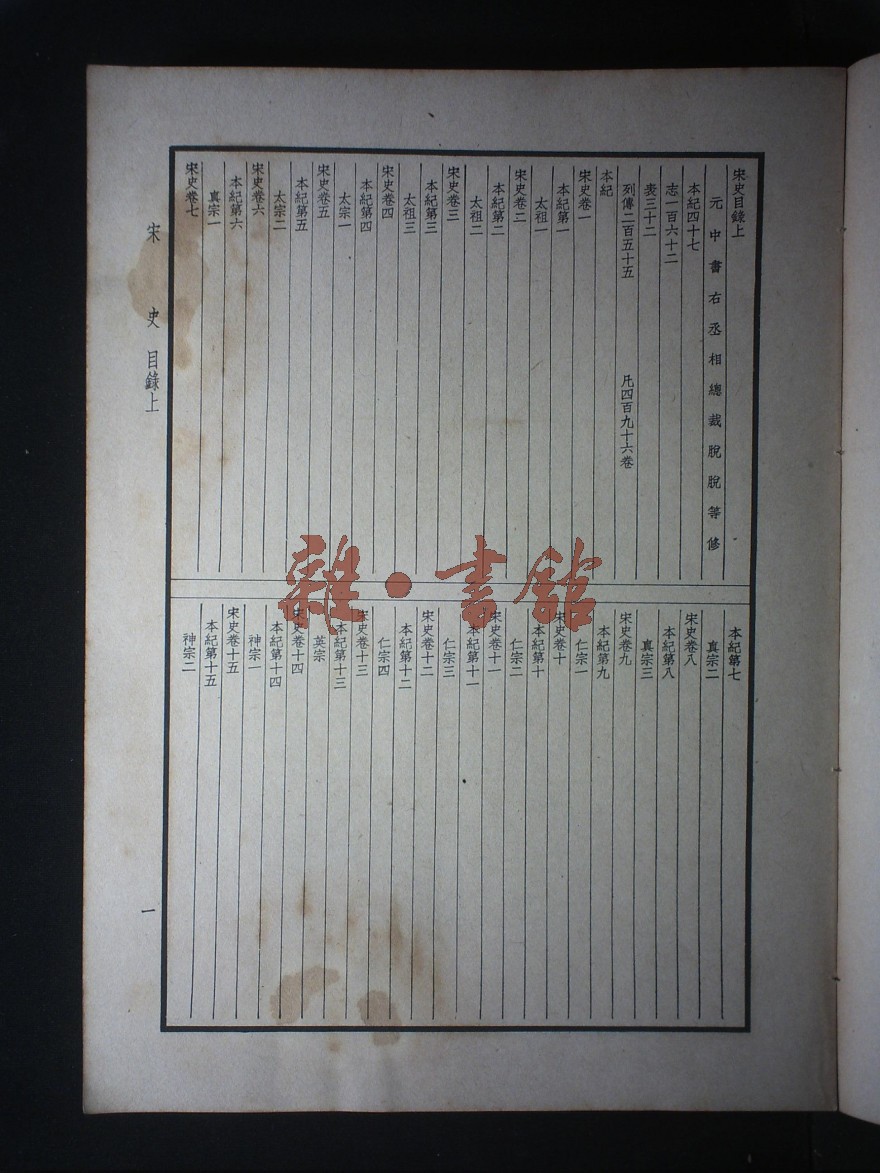 宋史目錄上
元中書右丞相總裁脫脫等修
本紀四十七
志一百六十二
表三十二
列傳二百五十五　凡四百九十六卷
本紀
宋史卷一
本紀第一
太祖一
宋史卷二
本紀第二
太祖二
宋史卷三
本紀第三
太祖三
宋史卷四
本紀第四
太宗一
宋史卷五
本紀第五
太宗二
宋史卷六
本紀第六
真宗一
宋史卷七
本紀第七
真宗二
宋史卷八
本紀第八
真宗三
宋史卷九
本紀第九
仁宗一
宋史卷十
本紀第十
仁宗二
宋史卷十一
本紀第十一
仁宗三
宋史卷十二
本紀第十二
仁宗四
宋史卷十三
本紀第十三
英宗
宋史卷十四
本紀第十四
神宗一
宋史卷十五
本紀第十五
神宗二
宋史 目錄上
一
雜·書館